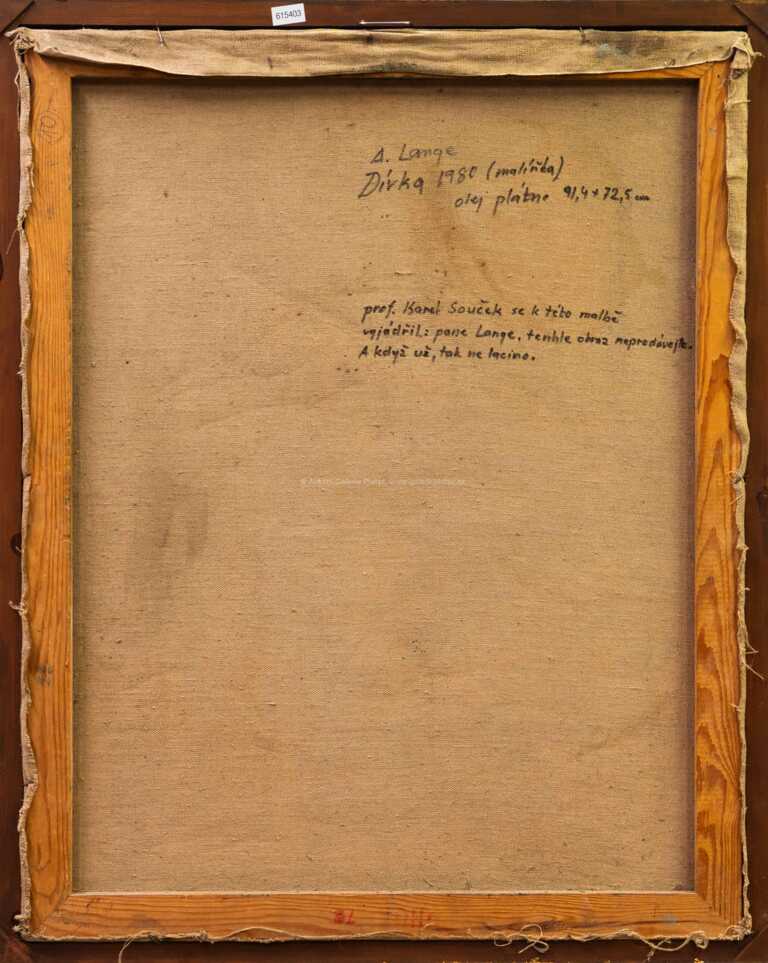 615403
A. Lange
Dívka 1980 (malířka)
olej plátno 91,4 x 72,5 cm
prof. Karel Souček se k této malbě
vyjádřil: pane Lange, tenhle obraz neprodávejte.
A když už, tak ne lacino.